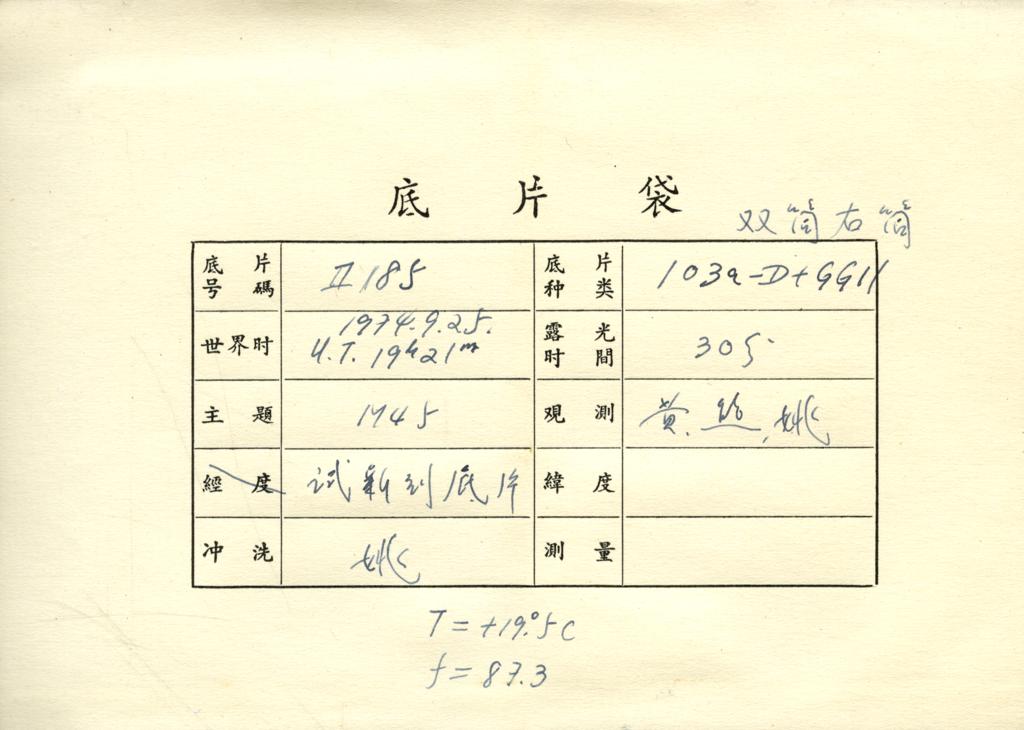 底片袋
双筒右筒
底片号碼 II 185 底片种类 103a-D+GG11
世界时 1974.9.25. U.T. 19h21m 露光时間 30s
主題 1745 观測 黄.丝,姚
經度 试新到底片 緯度
冲洗 姚 測量
T=+19°.5C
f=87.3